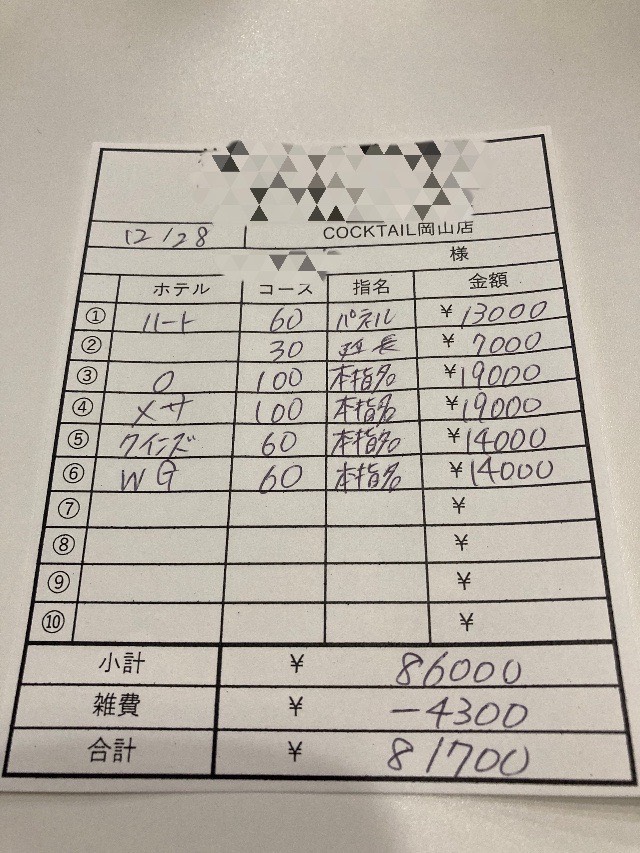 12/28 COCKTAIL岡山店
様
ホテル コース 指名 金額
① ハート 60 パネル ¥13000
② 30 延長 ¥7000
③ O 100 本指名 ¥19000
④ メサ 100 本指名 ¥19000
⑤ クインズ 60 本指名 ¥14000
⑥ WG 60 本指名 ¥14000
⑦ ¥
⑧ ¥
⑨ ¥
⑩ ¥
小計 ¥ 86000
雑費 ¥ -4300
合計 ¥ 81700